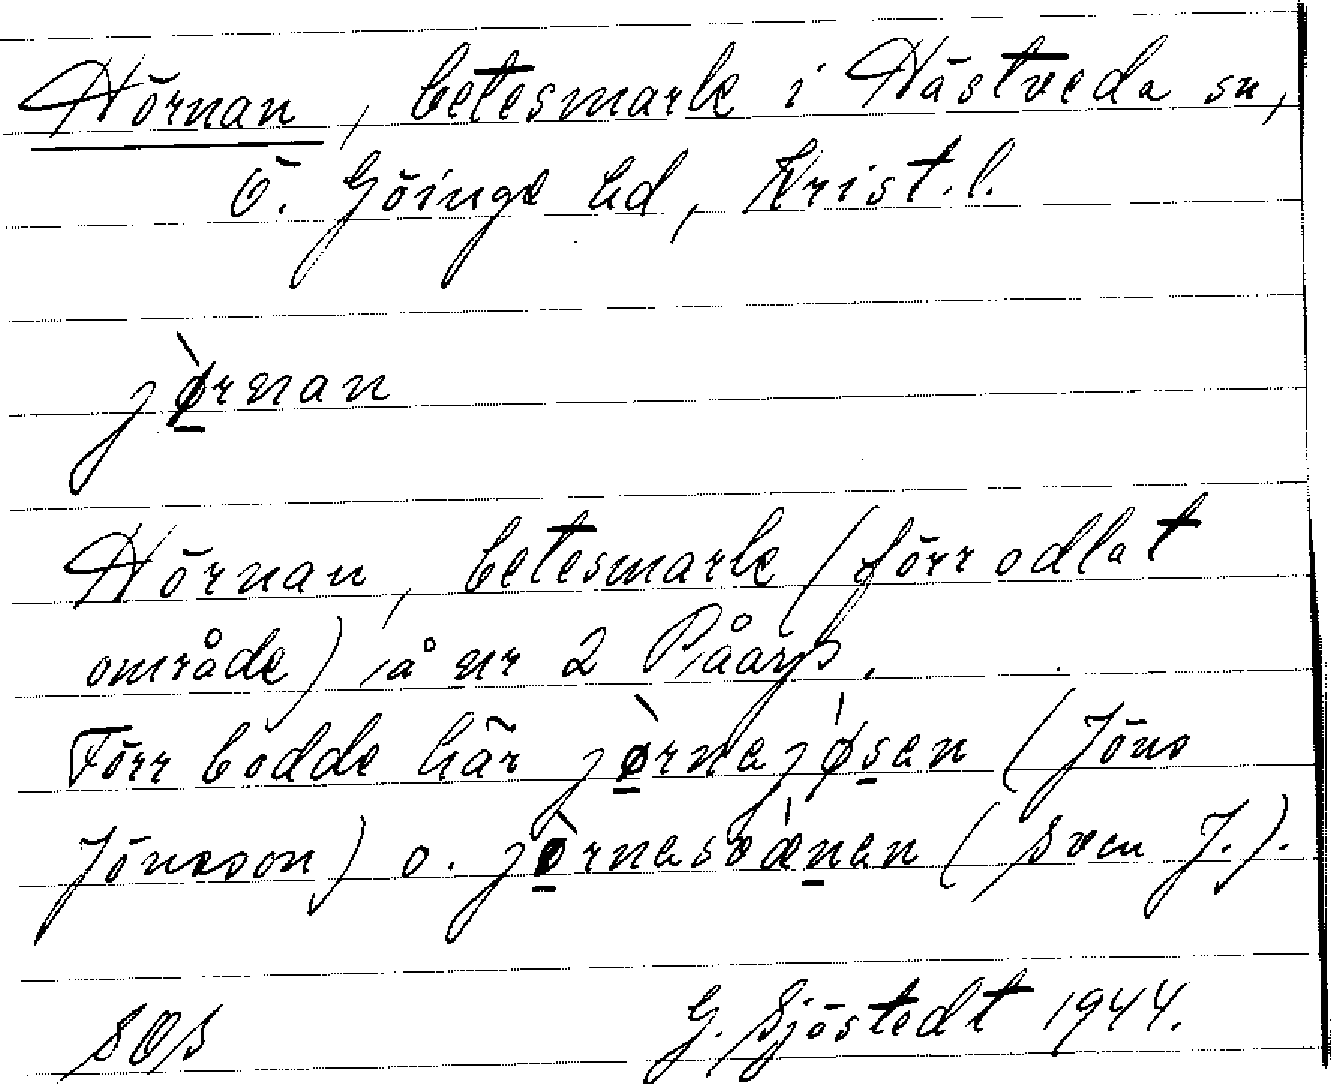 Hörnan, betesmark i Hästveda sn,
Ö. Göinge hd, Krist. l.
jø̠̀rnan
Hörnan, betesmark (förr odlat
område) å nr 2 Påarp.
Förr bodde här jø̠̀rnajǿs̠en (Jöns
Jönsson) o. jø̠̀rnasvǽn̠en (Sven J.).
SOS G. Sjöstedt 1944.